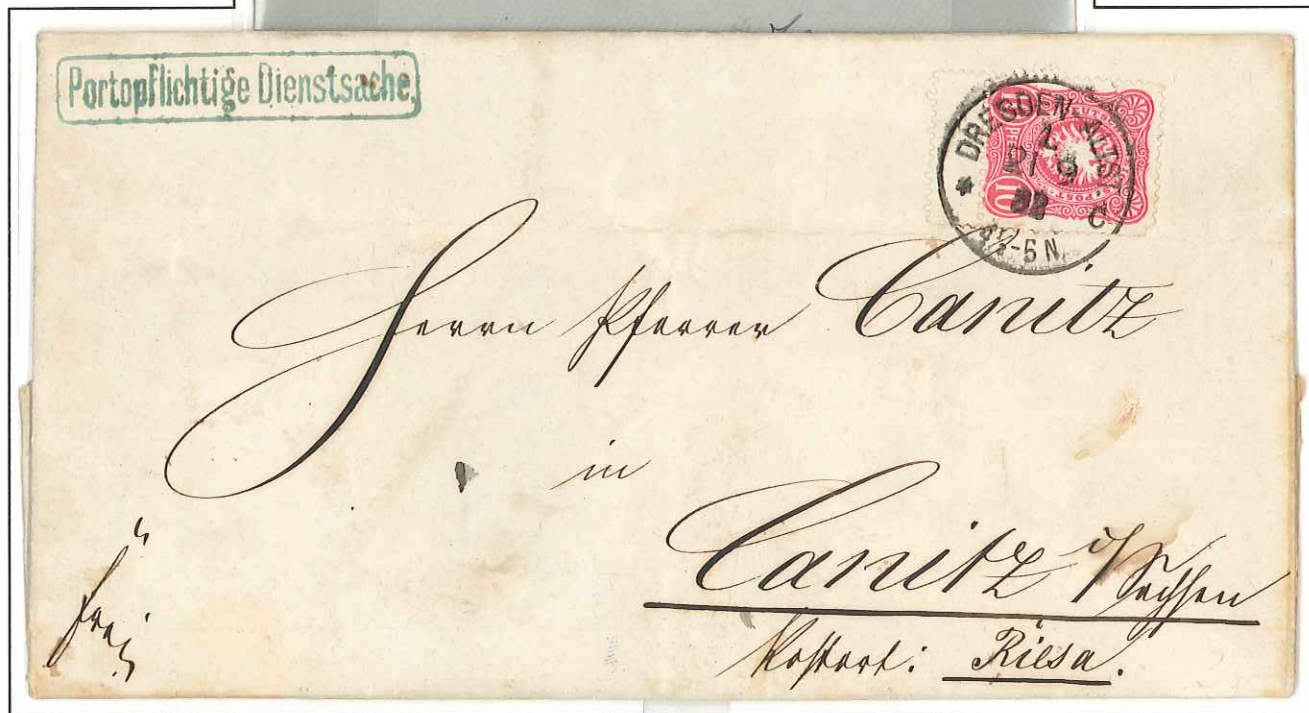 Portopflichtige Dienstsache.
DRESDEN-ALTST.
1
21 9
82
C
-5 N
10 PFENNIG 10
POST
Herrn Pfarrer Canitz
in
Canitz i/Sachsen
Postort: Riesa.
frei